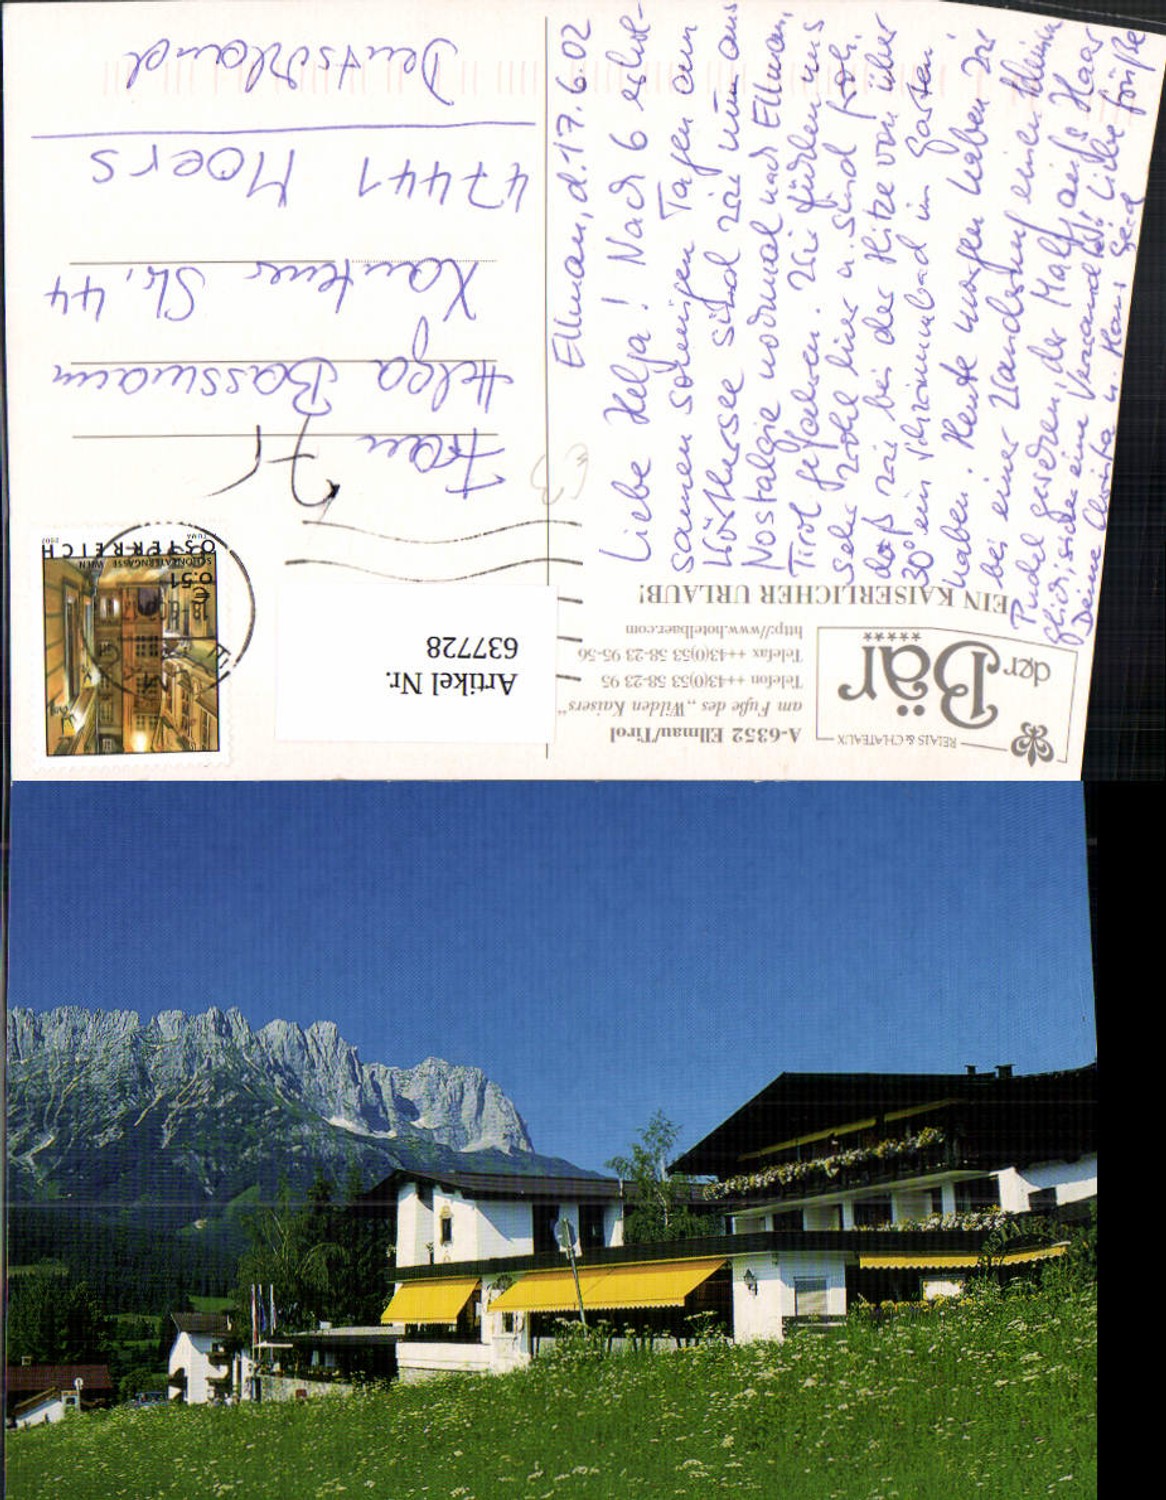 Ellmau, d. 17.6.02
Liebe Helga! Nach 6 erhol-
samen sonnigen Tagen am
Wörthersee sind wir nun aus
Nostalgie nochmal nach Ellmau,
Tirol gefahren. Wir fühlen uns
sehr wohl hier u. sind froh,
daß wir bei der Hitze von über
30° ein Schwimmbad im Garten
haben. Heute morgen haben wir
bei einer Wanderung einen kleinen
Pudel gesehen, der Malf aufs Haar
glich, sicher eine Verwandte! Liebe Grüße
Deine Christa u. Hans Gerd
Frau
Helga Bassmann
Xantener Str. 44
47441 Moers
Deutschland
RELAIS & CHATEAUX
der Bär
*****
A-6352 Ellmau/Tirol
am Fuße des „Wilden Kaisers"
Telefon ++43(0)53 58-23 95
Telefax ++43(0)53 58-23 95-56
http://www.hotelbaer.com
EIN KAISERLICHER URLAUB!
Artikel Nr.
637728
€ 0.51
SCHÖNLATERNGASSE WIEN
ÖSTERREICH
2002